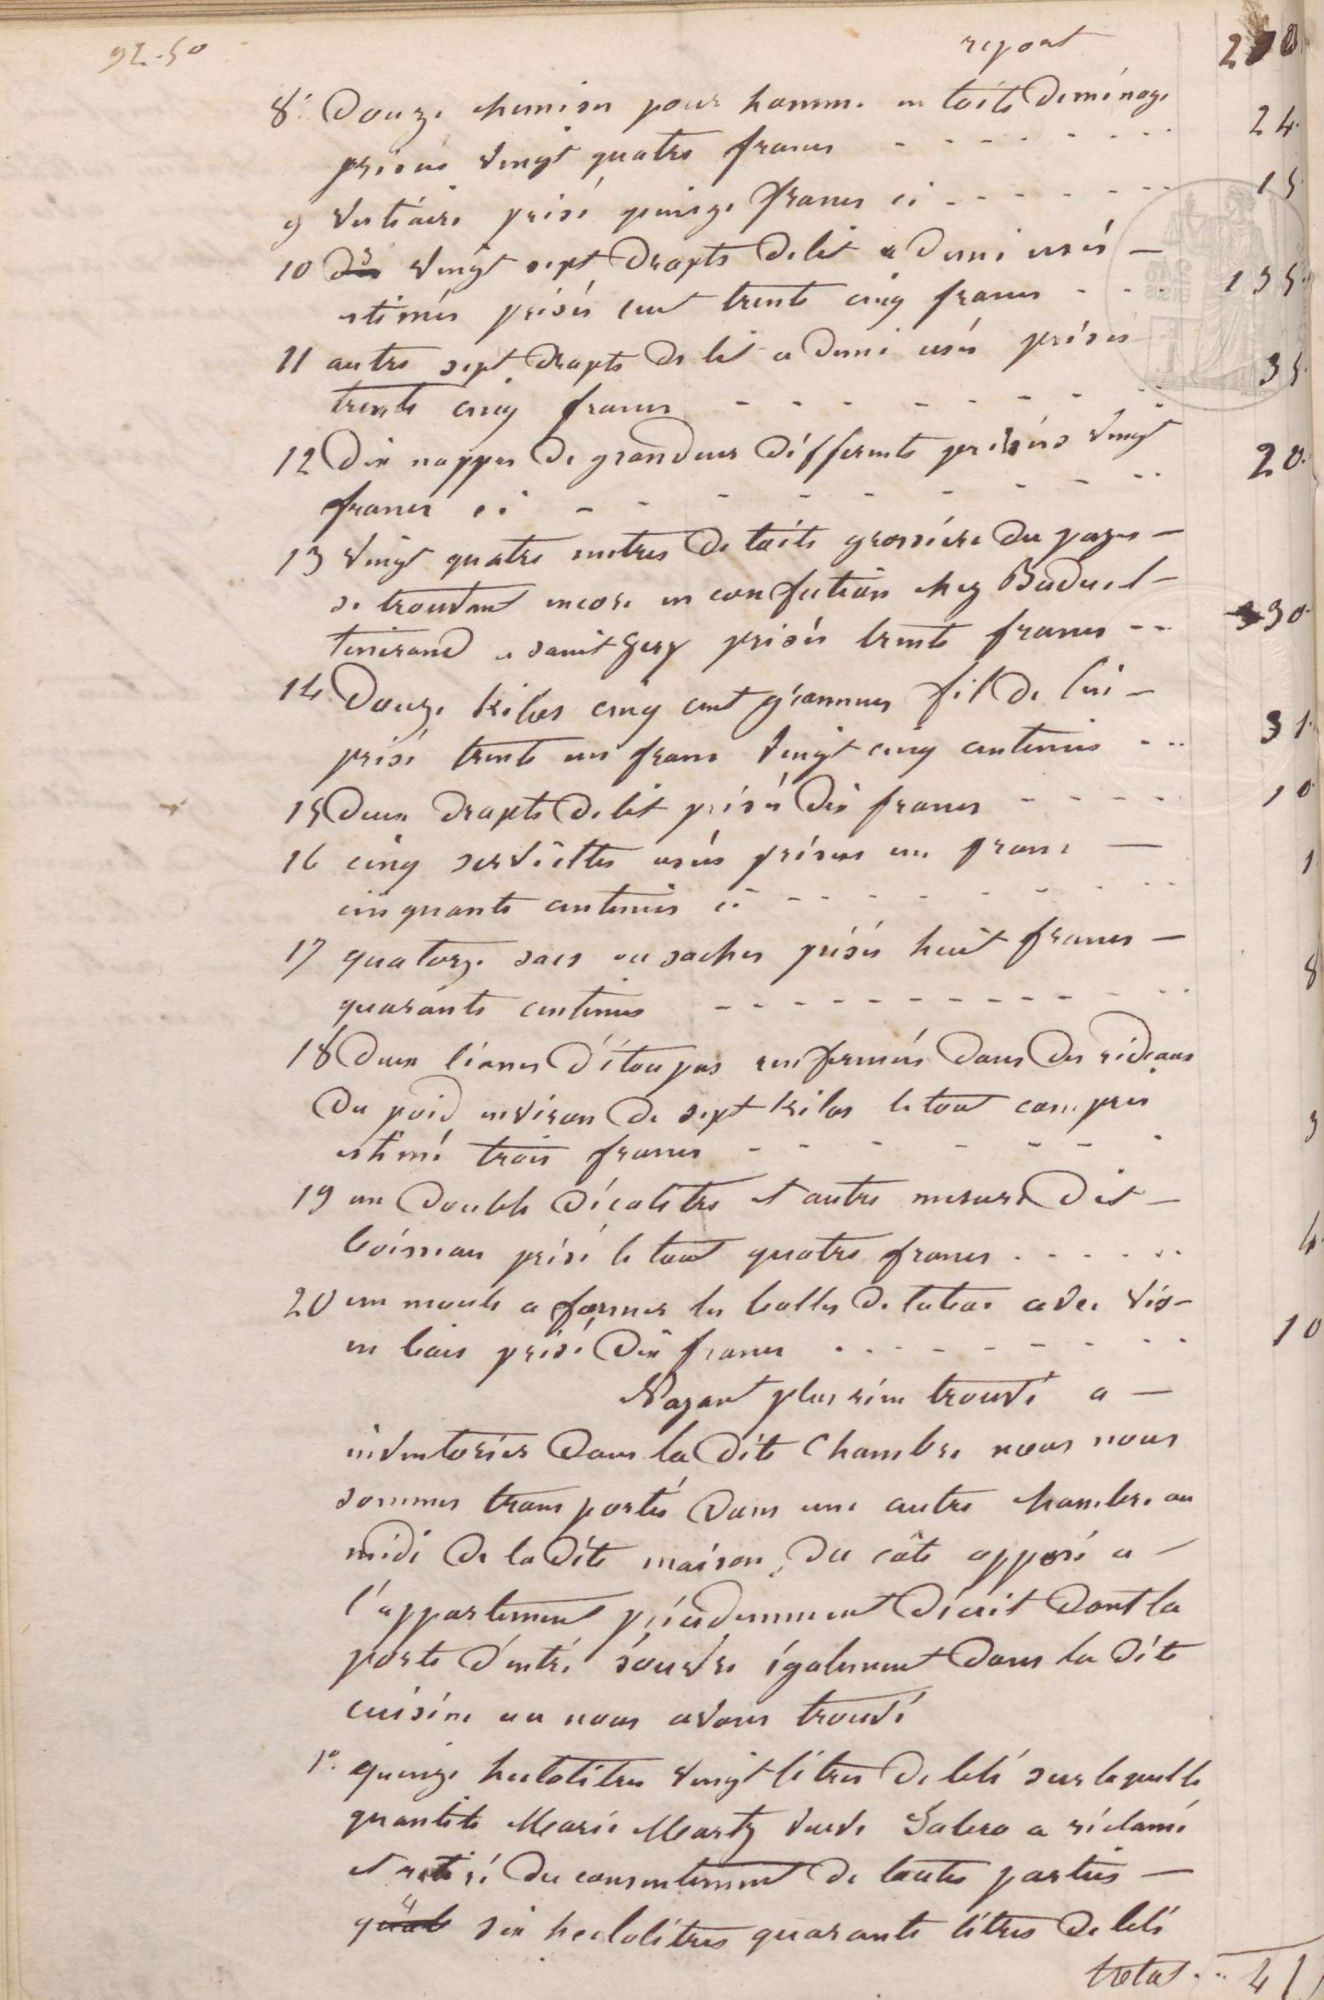 92-50
report 208
8° Douze chemises pour homme en toile de ménage
prisées vingt quatre francs - - - - - - - - 24
9 vestiaire prisé quinze francs ci - - - - - - - 15
10 vingt sept drapts de lit a demi usés —
estimés prisés cent trente cinq francs - - - 135
11 autre sept drapts de lit a demi usés prisés
trente cinq francs - - - - - - - - - 35
12 dix nappes de grandeur différente prisées vingt
francs ci - - - - - - - - - 20
13 vingt quatre metres de toile grossière du pays —
se trouvant encore en confection chez Baduel
tisserand a saint gery prisés trente francs - - 30
14 Douze kilos cinq cent grammes fil de lin —
prisé trente un franc vingt cinq centimes - - 31
15 deux drapts de lit prisés dix francs - - - - - 10
16 cinq serviettes usées prisées un franc —
cinquante centimes ci - - - - - - - - - 1
17 quatorze sacs ou saches prisés huit francs —
quarante centimes - - - - - - - - - - - - - 8
18 deux liasses d'étoupes renfermées dans des rideaux
du poid environ de sept kilos le tout compris
estimé trois francs - - - - - - - 3
19 un double décalitre et autre mesure dit —
boisseau prisé le tout quatre francs - - - - - - 4
20 un moule a former les balles de tabac avec vis —
en bois prisé dix francs - - - - - - - - 10
N'ayant plus rien trouvé a —
inventorier dans la dite chambre nous nous
sommes transportés dans une autre chambre au
midi de la dite maison, du côté opposé a —
l'appartement précédemment décrit dont la
porte d'entré s'ouvre également dans la dite
cuisine ou nous avons trouvé
1° quinze hectolitres vingt litres de blé sur laquelle
quantité Marie Marty veuve a réclamé
et retiré du consentement de toutes parties —
six hectolitres quarante litres de blé
total - - 41